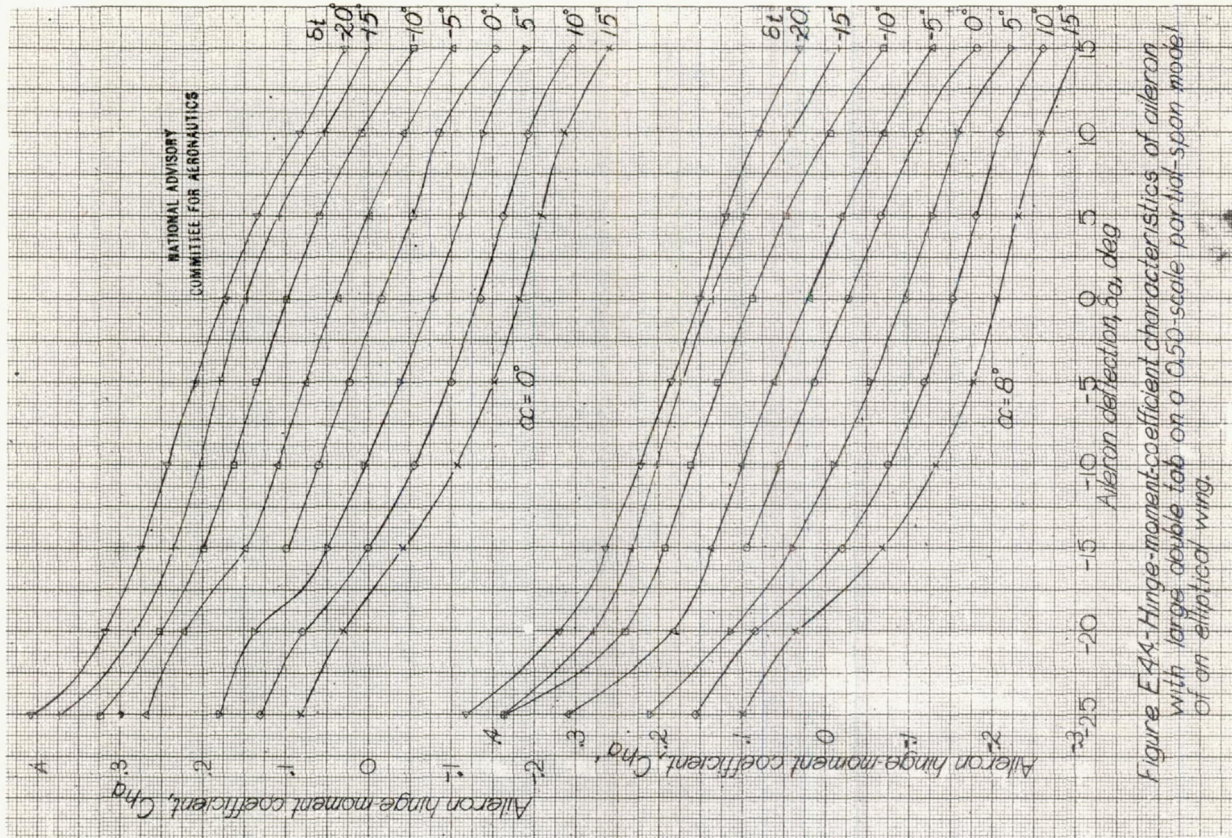 NATIONAL ADVISORY
COMMITTEE FOR AERONAUTICS
δt
-20°
-15°
-10°
-5°
0°
5°
10°
15°
α = 0°
Aileron hinge-moment coefficient, Cha
.4
.3
.2
.1
0
-.1
-.2
δt
-20°
-15°
-10°
-5°
0°
5°
10°
15°
α = 8°
Aileron hinge-moment coefficient, Cha
.4
.3
.2
.1
0
-.1
-.2
-.3
-25
-20
-15
-10
-5
0
5
10
15
Aileron deflection, δa, deg
Figure E44-Hinge-moment-coefficient characteristics of aileron
with large double tab on a 0.50-scale partial-span model
of an elliptical wing.